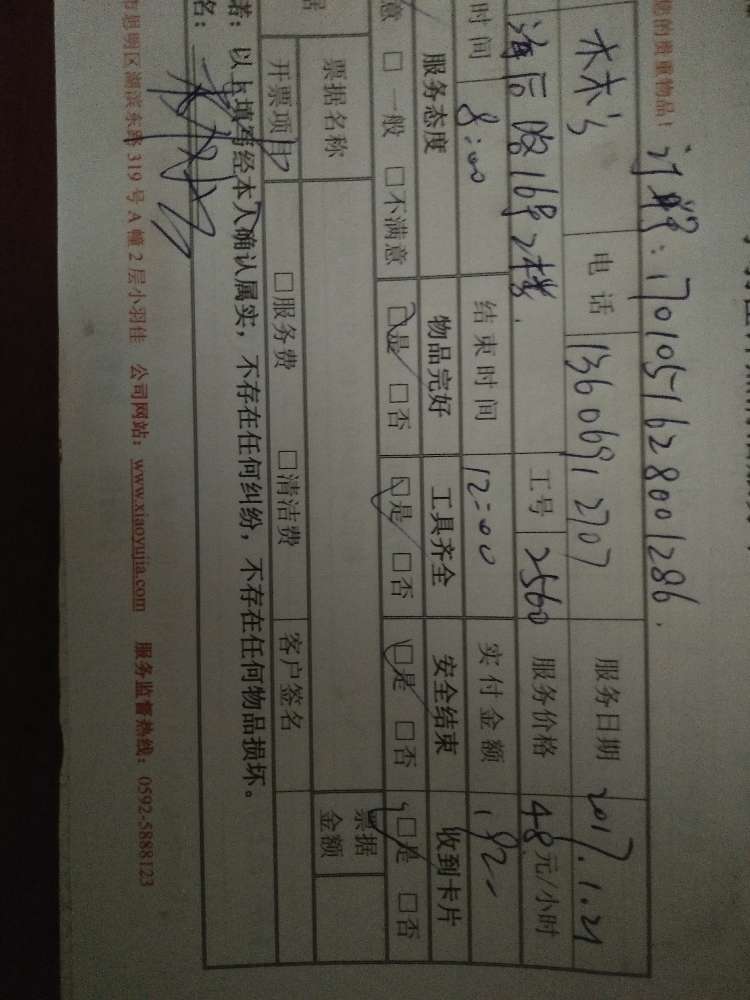 您的贵重物品！
订单号：1701051628001286.
电话 13606912707 服务日期 2017.1.21
海后路16号2楼. 工号 2560 服务价格 48元/小时
时间 8:00 结束时间 12:00 实付金额 192
服务态度 物品完好 工具齐全 安全结束 收到卡片
意 □一般 □不满意 □是 □否 □是 □否 □是 □否 □是 □否
据 票据名称 票据金额
开票项目 □服务费 □清洁费 客户签名
以上填写经本人确认属实，不存在任何纠纷，不存在任何物品损坏。
名：
市思明区湖滨东路319号A幢2层小羽佳 公司网站：www.xiaoyujia.com 服务监督热线：0592-5888123